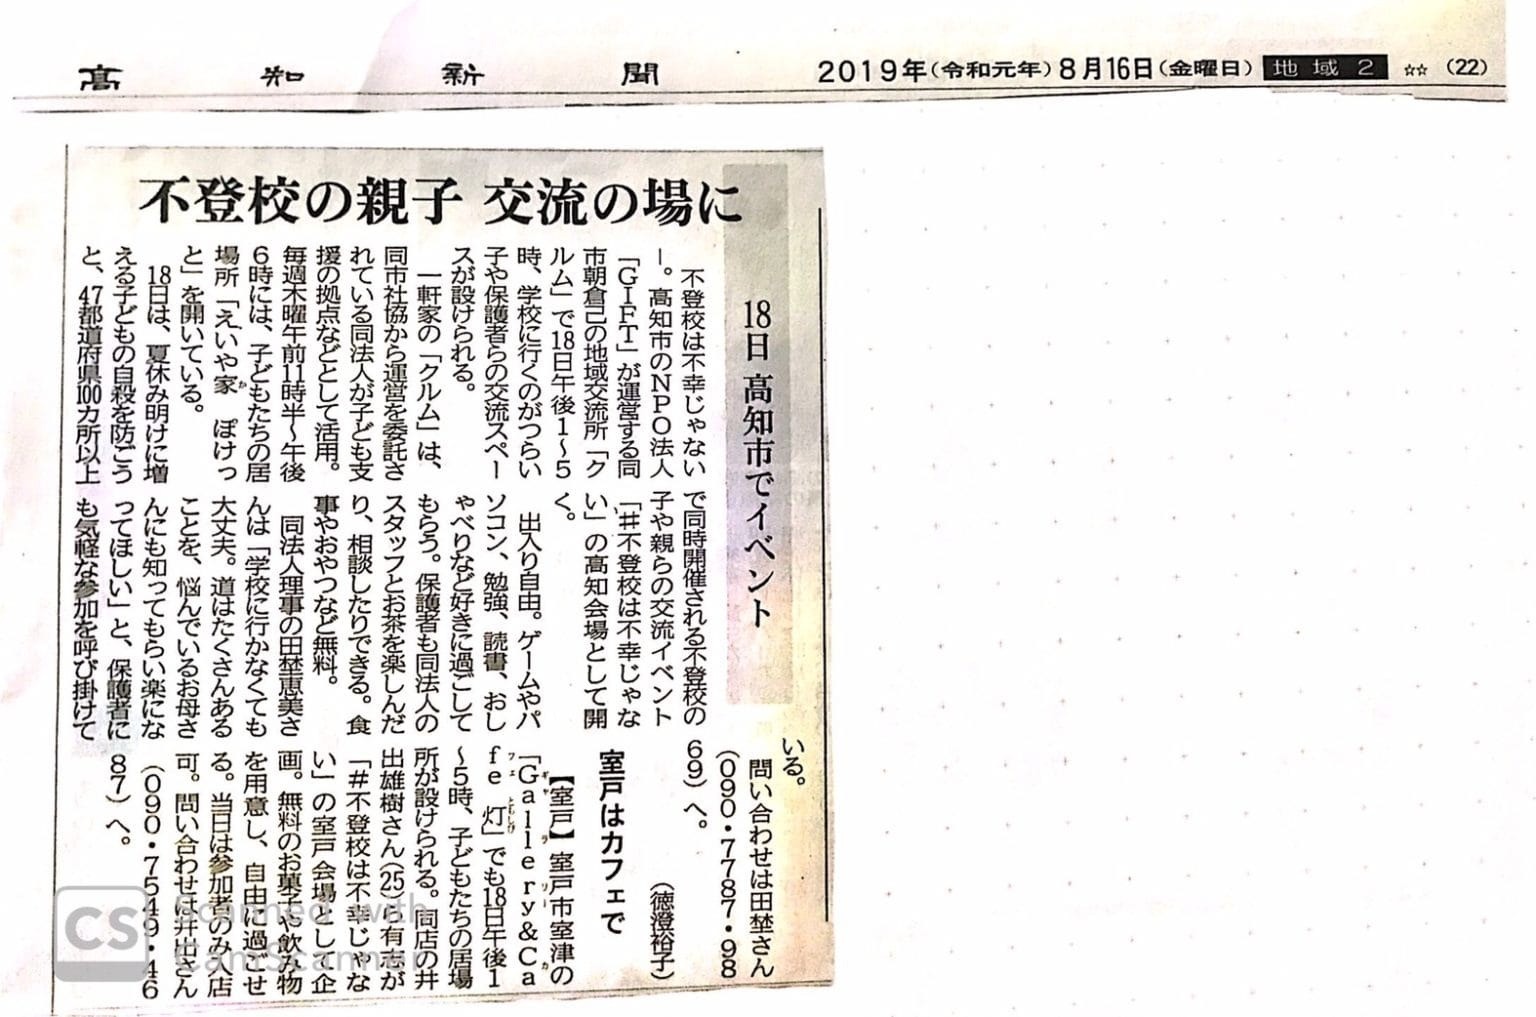 高知新聞 2019年(令和元年)8月16日(金曜日) 地域2 ☆☆ (22)
不登校の親子 交流の場に
18日 高知市でイベント
不登校は不幸じゃない
ー。高知市のNPO法人
「GIFT」が運営する同
市朝倉己の地域交流所「ク
ルム」で18日午後1〜5
時、学校に行くのがつらい
子や保護者らの交流スペー
スが設けられる。
一軒家の「クルム」は、
同市社協から運営を委託さ
れている同法人が子ども支
援の拠点などとして活用。
毎週木曜午前11時半〜午後
6時には、子どもたちの居
場所「えいや家 ぽけっ
か
と」を開いている。
18日は、夏休み明けに増
える子どもの自殺を防ごう
と、47都道府県100カ所以上
で同時開催される不登校の
子や親らの交流イベント
「#不登校は不幸じゃな
い」の高知会場として開
く。
出入り自由。ゲームやパ
ソコン、勉強、読書、おし
ゃべりなど好きに過ごして
もらう。保護者も同法人の
スタッフとお茶を楽しんだ
り、相談したりできる。食
事やおやつなど無料。
同法人理事の田埜恵美さ
んは「学校に行かなくても
大丈夫。道はたくさんある
ことを、悩んでいるお母さ
んにも知ってもらい楽にな
ってほしい」と、保護者に
も気軽な参加を呼び掛けて
いる。
問い合わせは田埜さん
(090・7787・98
69)へ。
(徳澄裕子)
室戸はカフェで
【室戸】室戸市室津の
「Gallery&Ca
ギャラリー カ
fe 灯」でも18日午後1
フェ ともしび
〜5時、子どもたちの居場
所が設けられる。同店の井
出雄樹さん(25)ら有志が
「#不登校は不幸じゃな
い」の室戸会場として企
画。無料のお菓子や飲み物
を用意し、自由に過ごせ
る。当日は参加者のみ入店
可。問い合わせは井出さん
(090・7549・46
87)へ。
CS Scanned with
CamScanner